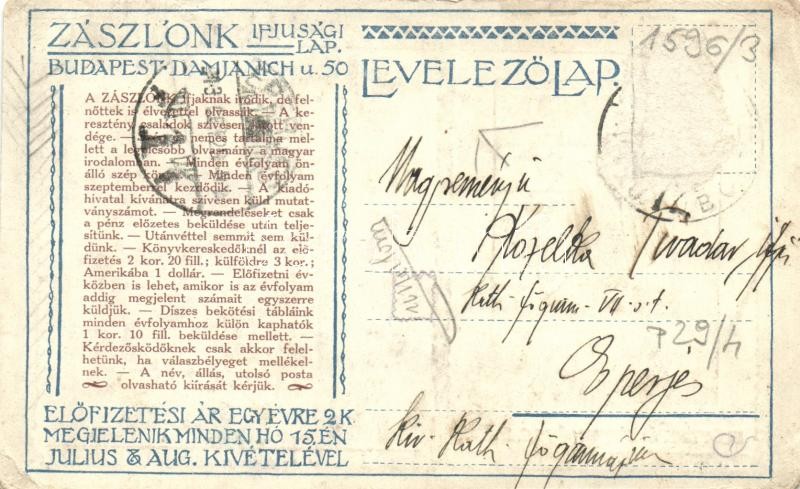 ZÁSZLÓNK IFJUSÁGI
LAP.
BUDAPEST · DAMJANICH u. 50
A ZÁSZLÓNK ifjaknak iródik, de fel-
nőttek is élvezettel olvassák. — A ke-
resztény családok szivesen látott ven-
dége. — nemes tartalma mel-
lett a legolcsóbb olvasmány a magyar
irodalomban. — Minden évfolyam ön-
álló szép — Minden évfolyam
szeptemberrel kezdődik. — A kiadó-
hivatal kívánatra szivesen küld mutat-
ványszámot. — Megrendeléseket csak
a pénz előzetes beküldése után telje-
sítünk. — Utánvéttel semmit sem kül-
dünk. — Könyvkereskedőknél az elő-
fizetés 2 kor. 20 fill.; külföldre 3 kor.;
Amerikába 1 dollár. — Előfizetni év-
közben is lehet, amikor is az évfolyam
addig megjelent számait egyszerre
küldjük. — Díszes bekötési tábláink
minden évfolyamhoz külön kaphatók
1 kor. 10 fill. beküldése mellett. —
Kérdezősködőknek csak akkor felel-
hetünk, ha válaszbélyeget mellékel-
nek. — A név, állás, utolsó posta
olvasható kiírását kérjük.
ELŐFIZETÉSI ÁR EGY ÉVRE 2 K
MEGJELENIK MINDEN HÓ 15.ÉN
JULIUS & AUG. KIVÉTELÉVEL
LEVELEZŐLAP.
1596/3
Nagreményü
Kozelka Tivadar
Kath. főgimn. VII. o. t.
P29/4
Eperjes
Kir. Kath. főgimnázium